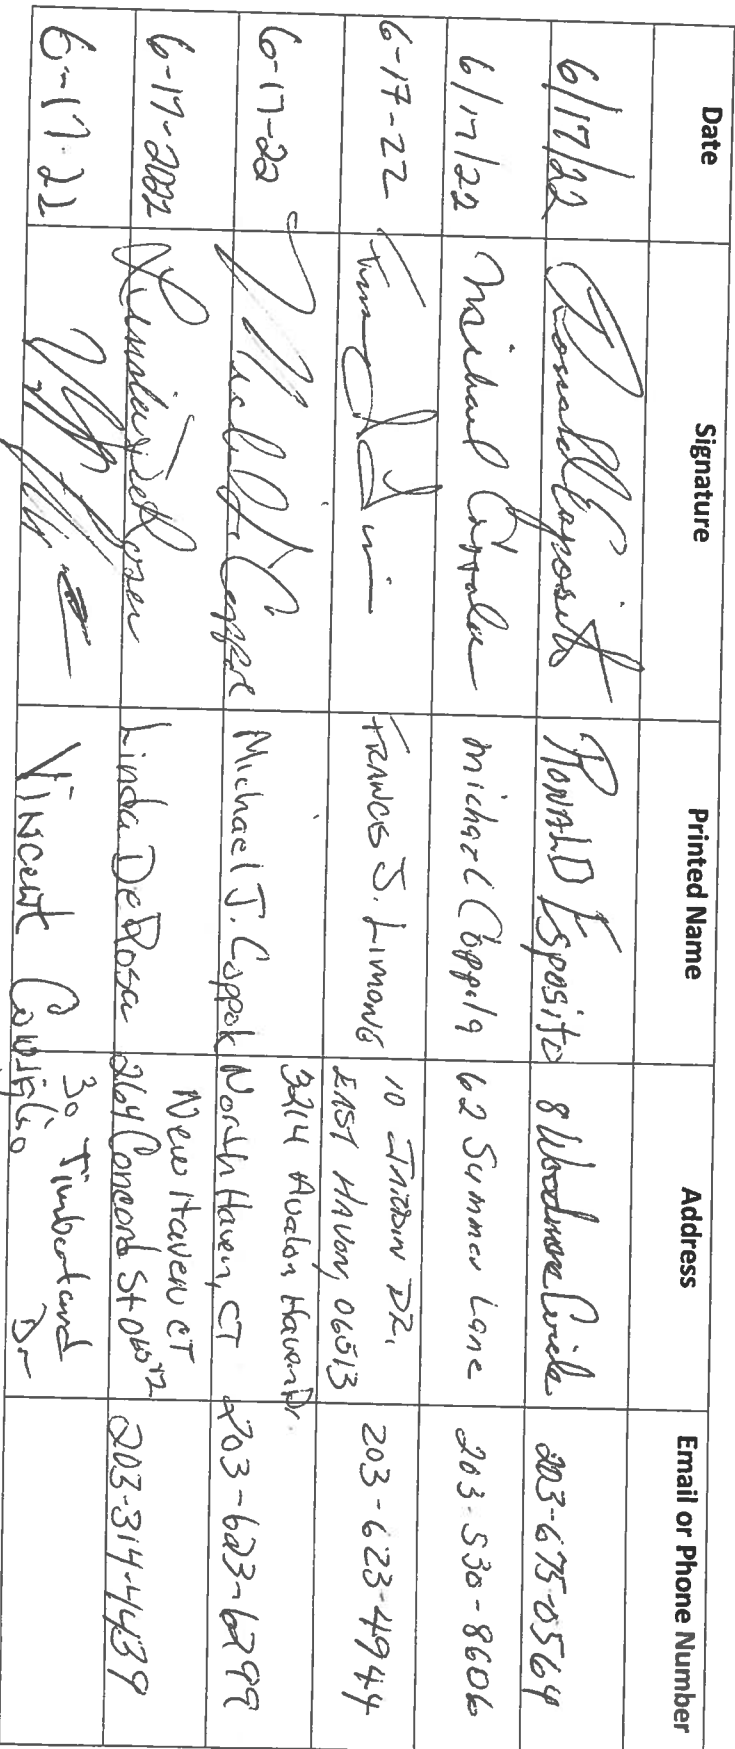 Date Signature Printed Name Address Email or Phone Number
6/17/22 Ronald Esposito RONALD Esposito 8 Woodmere Circle 203-675-0564
6/17/22 Michael Coppola michael Coppola 62 Summer Lane 203-530-8606
6-17-22 FRANCIS J. LIMONE 10 DR,
EAST HAVEN, 06513 203-623-4944
6-17-22 Michael J. Coppola Michael J. Coppola 3214 Avalon Haven Dr.
North Haven, CT 203-623-6299
6-17-2022 Linda DeRosa Linda DeRosa New Haven CT
264 Concord St 06512 203-314-4439
6-17-22 Vincent 30 Timberland
Dr